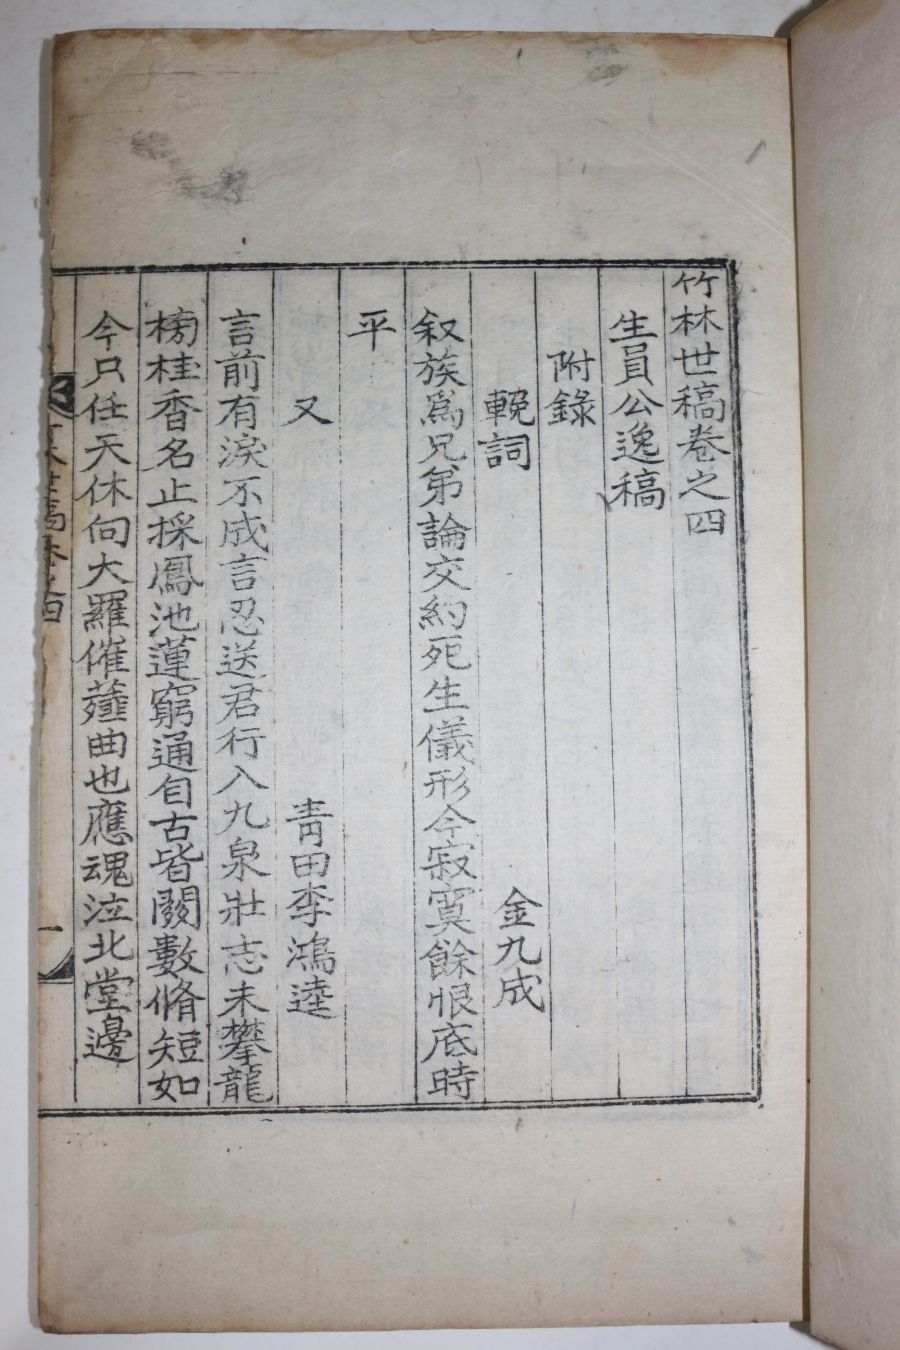 竹林世稿卷之四
生員公逸稿
附錄
輓詞　金九成
叙族爲兄弟論交約死生儀形今寂寞餘恨底時
平
又　靑田李鴻逵
言前有淚不成言忍送君行入九泉壯志未攀龍
榜桂香名止採鳳池蓮窮通自古皆關數脩短如
今只任天休向大羅催薤曲也應魂泣北堂邊
竹林世稿卷之四　一